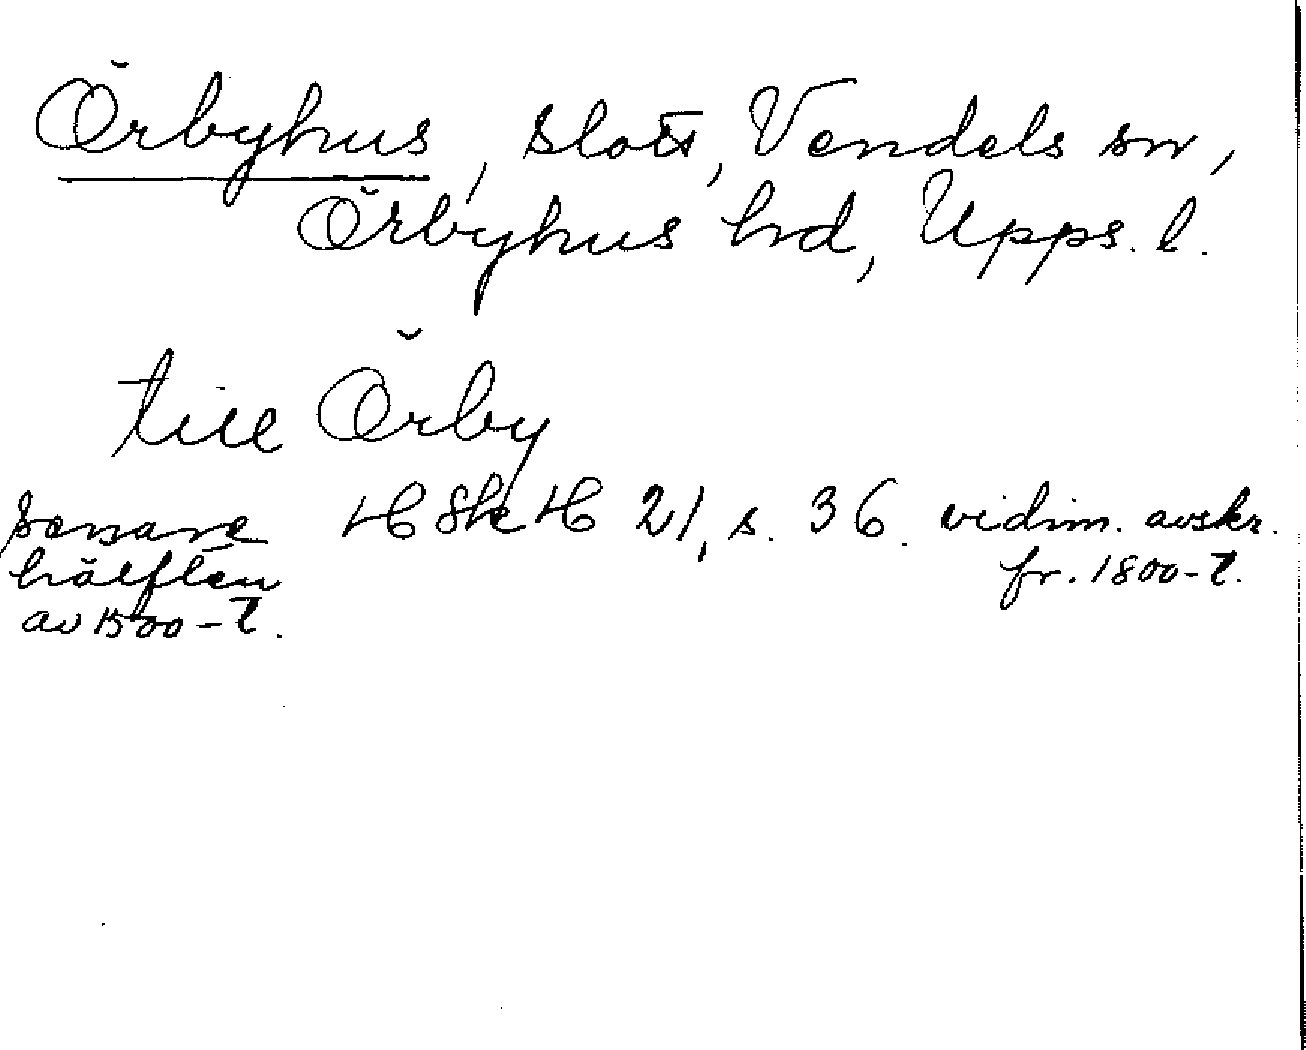 Örbyhus, slott, Vendels sn,
Örbyhus hd, Upps. l.
till Örby
senare HSkH 21, s. 36. vidim. avskr.
hälften fr. 1800-t.
av 1500-t.